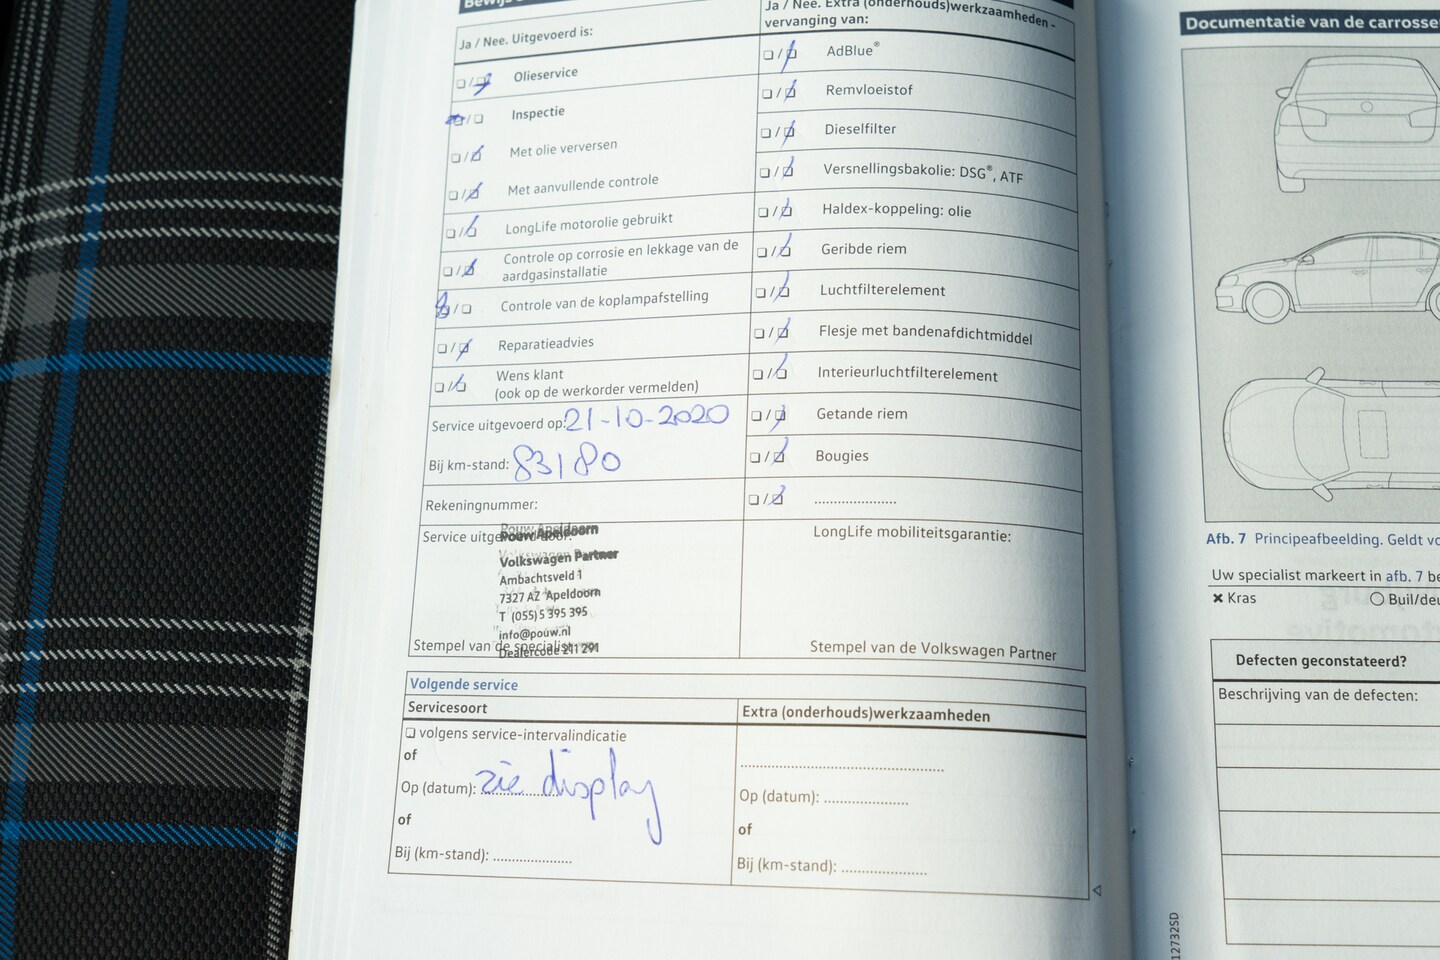 Ja / Nee. Uitgevoerd is:
Olieservice
Inspectie
Met olie verversen
Met aanvullende controle
LongLife motorolie gebruikt
Controle op corrosie en lekkage van de
aardgasinstallatie
Controle van de koplampafstelling
Reparatieadvies
Wens klant
(ook op de werkorder vermelden)
Service uitgevoerd op: 21-10-2020
Bij km-stand: 83180
Rekeningnummer:
Service uitge
Pouw Apeldoorn
Volkswagen Partner
Ambachtsveld 1
7327 AZ Apeldoorn
T (055) 5 395 395
info@pouw.nl
Dealercode 211 291
Stempel van de specialist
Ja / Nee. Extra (onderhouds)werkzaamheden -
vervanging van:
AdBlue®
Remvloeistof
Dieselfilter
Versnellingsbakolie: DSG®, ATF
Haldex-koppeling: olie
Geribde riem
Luchtfilterelement
Flesje met bandenafdichtmiddel
Interieurluchtfilterelement
Getande riem
Bougies
....................
LongLife mobiliteitsgarantie:
Stempel van de Volkswagen Partner
Volgende service
Servicesoort
volgens service-intervalindicatie
of
Op (datum): zie display
of
Bij (km-stand): ....................
Extra (onderhouds)werkzaamheden
..................................................
Op (datum): .....................
of
Bij (km-stand): .....................
Documentatie van de carrosse
Afb. 7 Principeafbeelding. Geldt vo
Uw specialist markeert in afb. 7 be
Kras
Buil/deu
Defecten geconstateerd?
Beschrijving van de defecten:
12732SD